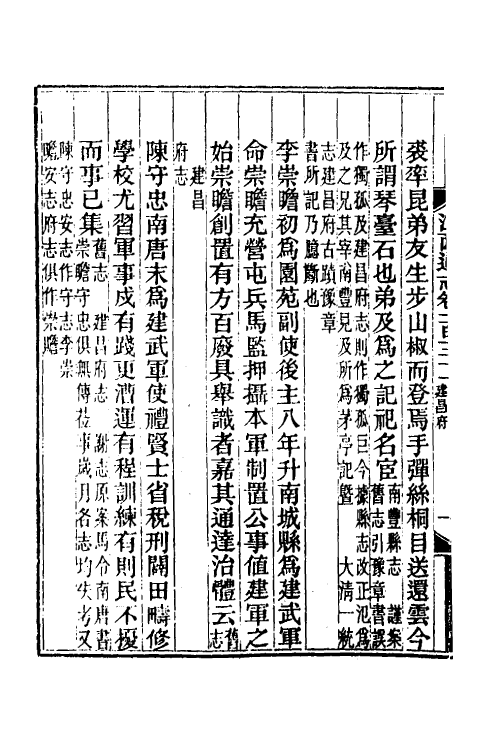 裘率昆弟友生步山椒而登焉手彈絲桐目送還雲今
所謂琴臺石也弟及爲之記祀名宦南豐縣志 謹案舊志引豫章書誤
作獨孤及建昌府志則作獨孤巨今據縣志改正氾爲及之兄其宰南豐見及所爲茅亭記曁 大淸一統
志建昌府古蹟豫章書所記乃臆斷也
李崇瞻初爲園苑副使後主八年升南城縣爲建武軍
命崇瞻充營屯兵馬監押攝本軍制置公事值建軍之
始崇瞻創置有方百廢具舉識者嘉其通達治體云舊志
建昌府志
陳守忠南唐末爲建武軍使禮賢士省稅刑闢田疇修
學校尤習軍事戍有踐更漕運有程訓練有則民不擾
而事已集舊志 建昌府志 謝志原案馬令南唐書崇瞻守忠俱無傳莅事歲月各志均失考又
陳守忠安志作守志李崇瞻安志府志俱作崇贍
江西通志卷一百三十一 建昌府